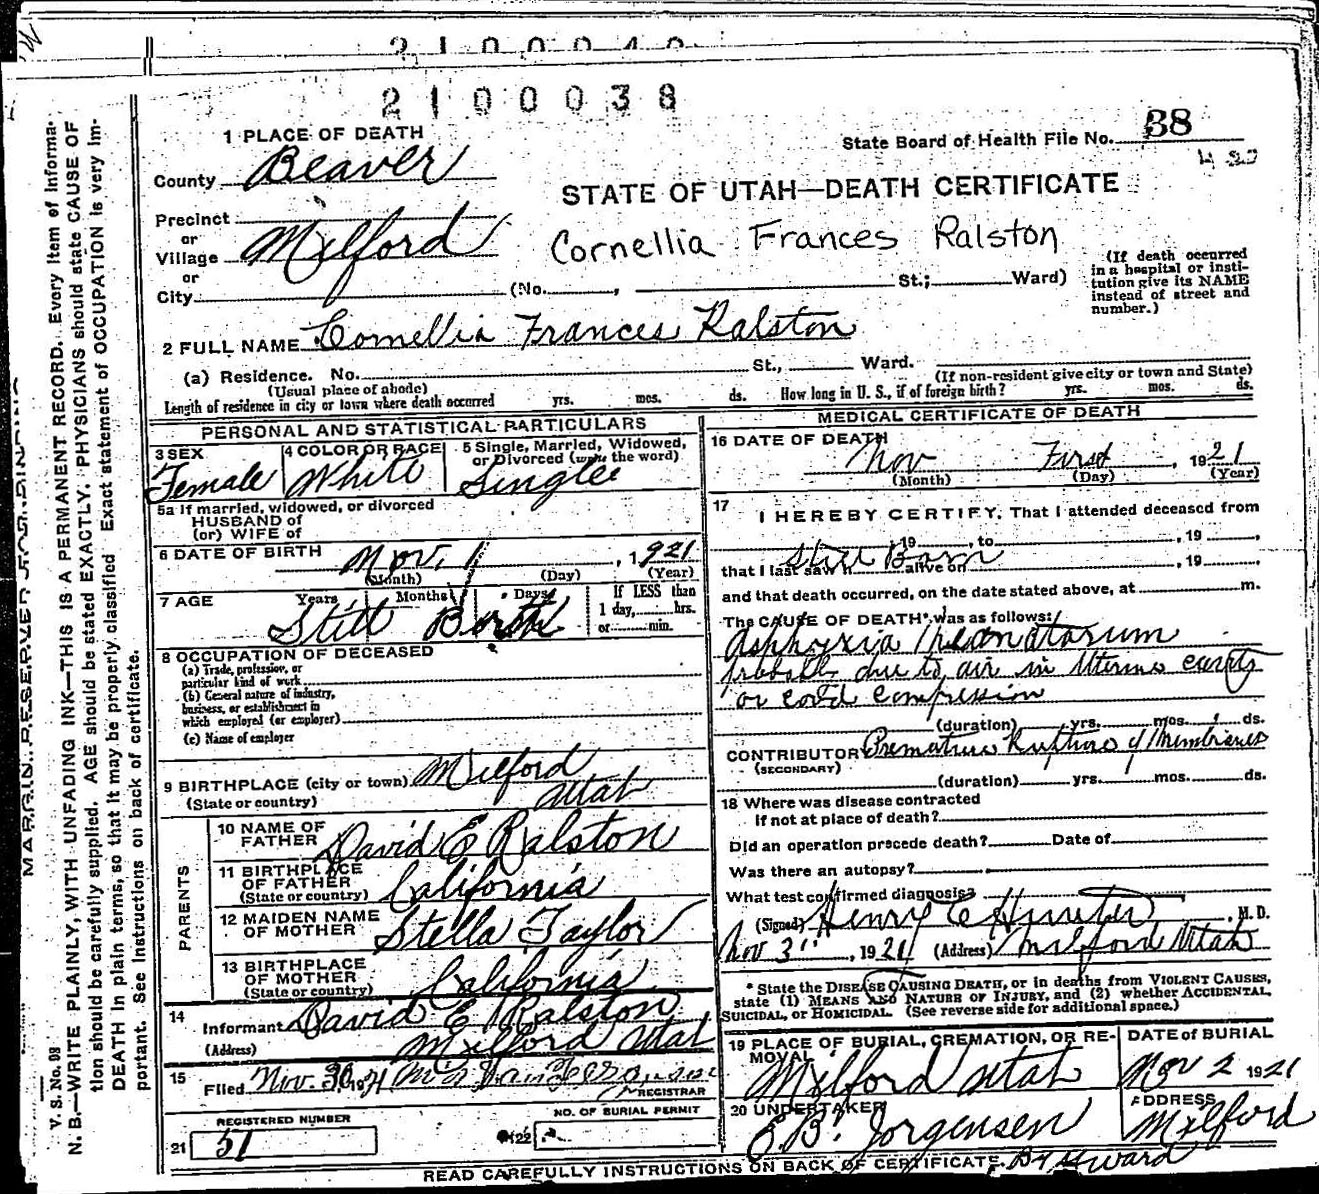 2100038
1 PLACE OF DEATH
State Board of Health File No. 38
County Beaver
STATE OF UTAH—DEATH CERTIFICATE
Precinct
or
Village Milford
Cornellia Frances Ralston
or
City (No. , St.; Ward)
(If death occurred
in a hospital or insti-
tution give its NAME
instead of street and
number.)
2 FULL NAME Cornellia Frances Ralston
(a) Residence. No. St., Ward.
(Usual place of abode)
(If non-resident give city or town and State)
Length of residence in city or town where death occurred yrs. mos. ds. How long in U. S., if of foreign birth? yrs. mos. ds.
PERSONAL AND STATISTICAL PARTICULARS
3 SEX
Female
4 COLOR OR RACE
White
5 Single, Married, Widowed,
or Divorced (write the word)
Single
5a If married, widowed, or divorced
HUSBAND of
(or) WIFE of
6 DATE OF BIRTH
Nov. 1, 1921
(Month) (Day) (Year)
7 AGE Years Months Days If LESS than
1 day, hrs.
or min.
Still Birth
8 OCCUPATION OF DECEASED
(a) Trade, profession, or
particular kind of work
(b) General nature of industry,
business, or establishment in
which employed (or employer)
(c) Name of employer
9 BIRTHPLACE (city or town) Milford
(State or country) Utah
PARENTS
10 NAME OF
FATHER David E Ralston
11 BIRTHPLACE
OF FATHER
(State or country) California
12 MAIDEN NAME
OF MOTHER Stella Taylor
13 BIRTHPLACE
OF MOTHER
(State or country) California
14
Informant David E Ralston
(Address) Milford Utah
15
Filed Nov. 30, 1921
REGISTRAR
REGISTERED NUMBER
21 51
NO. OF BURIAL PERMIT
22
MEDICAL CERTIFICATE OF DEATH
16 DATE OF DEATH
Nov First, 1921
(Month) (Day) (Year)
17
I HEREBY CERTIFY, That I attended deceased from
, 19 , to , 19 ,
Still Born
that I last saw h alive on , 19 ,
and that death occurred, on the date stated above, at m.
The CAUSE OF DEATH* was as follows:
Asphyxia Neonatorum
probably due to air in Uterine cavity
or cord compression
(duration) yrs. mos. ds.
CONTRIBUTORY Premature Rupture of Membranes
(SECONDARY)
(duration) yrs. mos. ds.
18 Where was disease contracted
If not at place of death?
Did an operation precede death? Date of
Was there an autopsy?
What test confirmed diagnosis?
(Signed) Henry E Hunter, M. D.
Nov 3", 1921 (Address) Milford Utah
* State the DISEASE CAUSING DEATH, or in deaths from VIOLENT CAUSES,
state (1) MEANS AND NATURE OF INJURY, and (2) whether ACCIDENTAL,
SUICIDAL, or HOMICIDAL. (See reverse side for additional space.)
19 PLACE OF BURIAL, CREMATION, OR RE-
MOVAL
Milford Utah
DATE OF BURIAL
Nov 2 1921
20 UNDERTAKER
E.B. Jorgensen
ADDRESS
Milford
READ CAREFULLY INSTRUCTIONS ON BACK OF CERTIFICATE.
V. S. No. 98
N. B.—WRITE PLAINLY, WITH UNFADING INK—THIS IS A PERMANENT RECORD. Every item of informa-
tion should be carefully supplied. AGE should be stated EXACTLY. PHYSICIANS should state CAUSE OF
DEATH in plain terms, so that it may be properly classified. Exact statement of OCCUPATION is very im-
portant. See instructions on back of certificate.
MARGIN RESERVED FOR BINDING